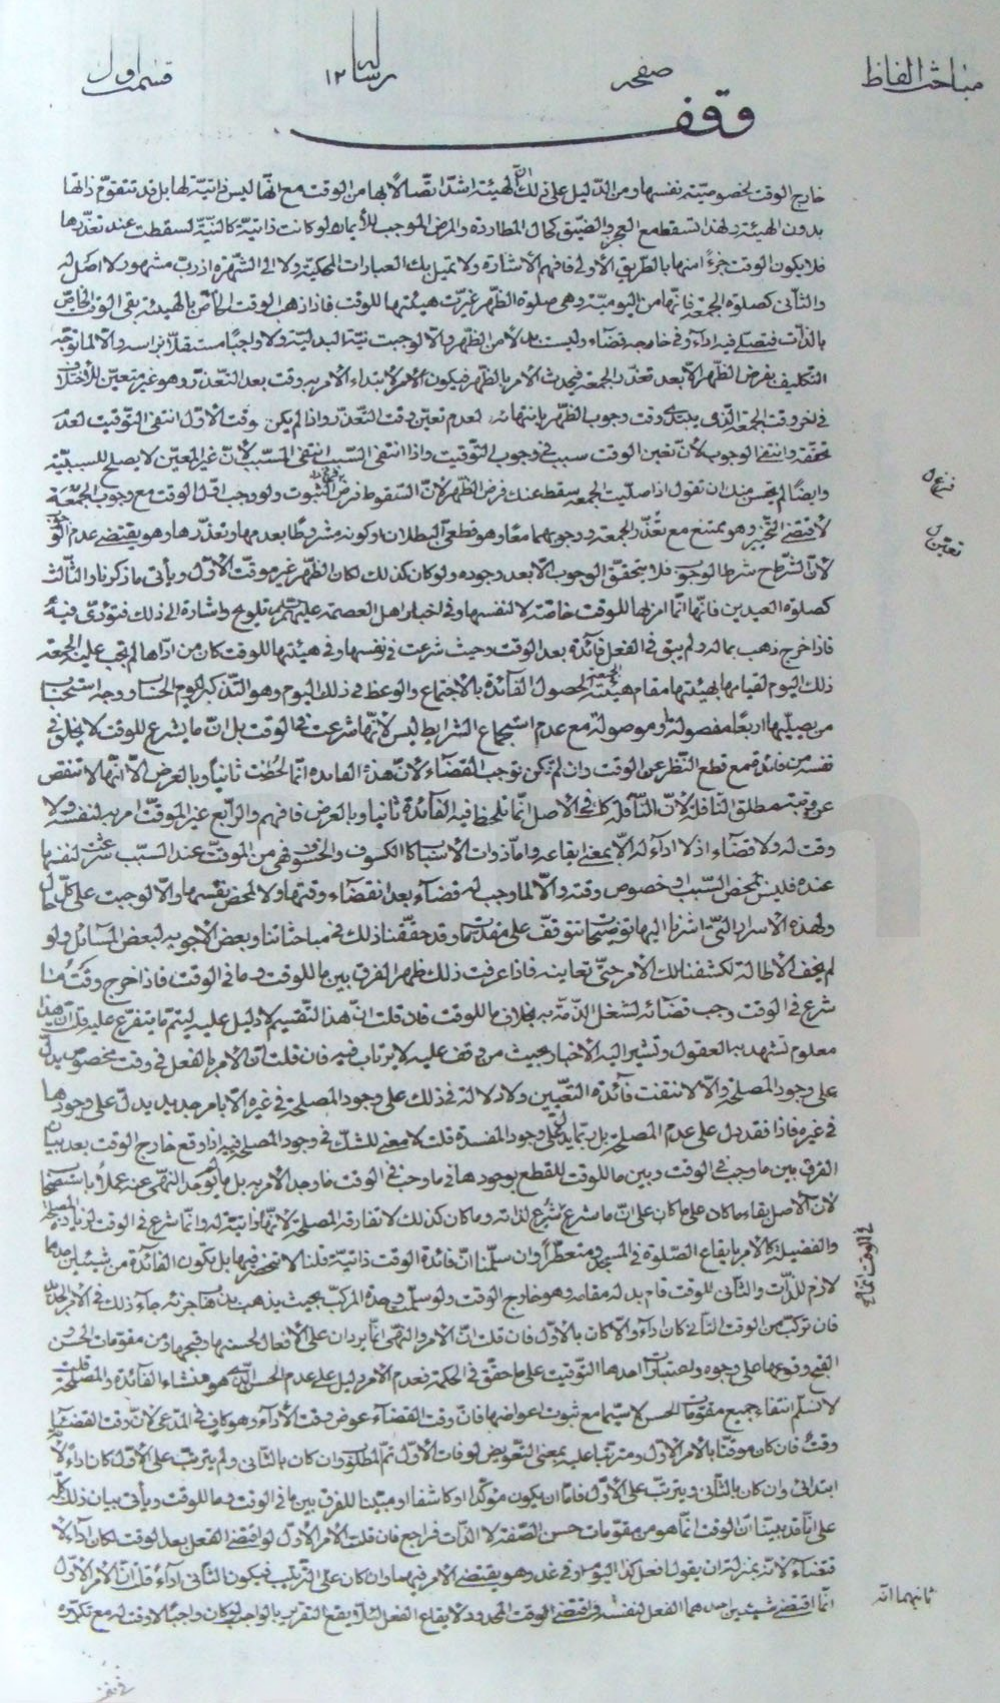 مباحث الفاظ صفحه رساله ١٢ قسمت اول
وقف
خارج الوقت لخصوصيته نفسها ومن الدليل على ذلك ان الهيئة اشد اتصالا بها من الوقت مع انها ليس ذاتية لها بل قد تتقوم ذاتها
بدون الهيئة ولهذا تسقط مع العجز والضيق كحال المطاردة والمرض الموجب للأيماء ولو كانت ذاتية كالنية لسقطت عند تعذرها
فلا يكون الوقت جزءا منها بالطريق الاولى فافهم الاشارة ولا تميل بك العبارات المحكية ولا الى الشهرة اذ رب مشهور لا اصل له
والثانى كصلوة الجمعة فانها من اليومية وهى صلوة الظهر غيرت هيئتها للوقت فاذا ذهب الوقت الخاص بالهيئة بقى الوقت الخاص
بالذات فتصلى فيه اداء وفى خارجه قضاء وليست بدلا من الظهر والا لوجبت نية البدلية ولا واجبا مستقلا براسه والا لما توجه
التكليف بفرض الظهر الا بعد تعذر الجمعة فيحدث الامر بالظهر فيكون الامر لابتداء الامر به وقت بعد التعذر وهو غير متعين للاختلاف
فى اخر وقت الجمعة الذى يبتدى وقت وجوب الظهر بانتهائه لعدم تعين وقت التعذر واذا لم يكن وقت الاول انتفى التوقيت لعدم
تحققه وانتفى الوجوب لأن تعين الوقت سبب فى وجوب التوقيت واذا انتفى السبب انتفى المسبب لأن غير المعين لا يصلح للسببية
وايضا لم يحسن منك ان تقول اذا صليت الجمعة سقط عنك فرض الظهر لان السقوط فرض الثبوت ولو وجب اول الوقت مع وجوب الجمعة
لأقتضى التخيير وهو يمتنع مع تعذر الجمعة ووجوبهما معا وهو قطعى البطلان وكونه مشروطا بعدمها وتعذرها وهو يقتضى عدم الوقت
لأن الشرط ح شرط الوجوب فلا يتحقق الوجوب الا بعد وجوده ولو كان كذلك لكان للظهر غير موقت الاول ويأتى ما ذكرنا والثالث
كصلوة العيدين فانها انما امر بها للوقت خاصة لا لنفسها وفى اخبار اهل العصمة عليهم السلام تلويح واشارة الى ذلك فتؤدى فيه
فاذا خرج ذهب بما له ولم يبق فى الفعل فائدة بعد الوقت وحيث شرعت فى نفسها وفى هيئتها للوقت كان من اداها لم تجب عليه الجمعة
ذلك اليوم لقيامها بهيئتها مقام هيئة الجمعة لحصول الفائدة بالاجتماع والوعظ فى ذلك اليوم وهو التذكير ليوم الحساب ووجه استحباب
من يصليها اربعا مفصولة وموصولة مع عدم استجماع الشرايط ليس لأنها شرعت فى الوقت بل ان ما يشرع للوقت لا يخلو فى
نفسه من فائدة فمع قطع النظر عن الوقت وان لم تكن توجب القضاء لأن هذه الفائدة انما لحظت ثانيا وبالعرض الا انها لا تنقص
عن رتبة مطلق النافلة لأن النافلة كما فى الاصل انما تلحظ فيه الفائدة ثانيا وبالعرض فافهم والرابع غير الموقت امر به لنفسه ولا
وقت له ولا قضاء اذ لا اداء له الا بمعنى ايقاعه واما ذوات الاسباب كالكسوف والخسوف فهى من الموقت عند السبب شرعت لنفسها
عنده فليس لمحض السبب او خصوص وقته والا لما وجب له قضاء بعد انقضاء وقتها ولا لمحض نفسها والا لوجبت على كل حال
ولهذه الاسرار التى اشرنا اليها توضيحات تتوقف على مقدمات وقد حققنا ذلك فى مباحثاتنا وبعض الاجوبة لبعض المسائل ولو
لم يخف الأطالة لكشفنا لك الأمر حتى تعاينه فاذا عرفت ذلك ظهر الفرق بين ما للوقت وما فى الوقت فاذا خرج وقت ما
شرع فى الوقت وجب قضائه لشغل الذمة به بخلاف ما للوقت فان قلت ان هذا التقسيم لا دليل عليه ليتم ما يتفرع عليه قلت ان هذا
معلوم تشهد به العقول وتشير اليه الاخبار بحيث من وقف عليه لا يرتاب فيه فان قلت ان الامر بالفعل فى وقت مخصوص يدل
على وجود المصلحة والا لانتفت فائدة التعيين ولا دلالة فى ذلك على وجود المصلحة فى غيره الا بامر جديد يدل على وجودها
فى غيره فاذا فقد دل على عدم المصلحة بل ربما يدل على وجود المفسدة قلت لا معنى للشك فى وجود المصلحة فيه اذا وقع خارج الوقت بعد بيان
الفرق بين ما وجب فى الوقت وبين ما للوقت للقطع بوجودها فى ما وجب فى الوقت فاوجد الامر به بل ما لم يوجد النهى عنه عملا باستصحابها
لأن الاصل بقاء ما كان على ما كان على ان ما شرع شرع لذاته وما كان كذلك لا تفارقه المصلحة لأنها ذاتية له وانما شرع فى الوقت لزيادة المصلحة
والفضيلة كالأمر بايقاع الصلوة فى المسجد ومتعطرا وان سلمنا ان فائدة الوقت ذاتية قلنا لا تنحصر فيها بل تكون الفائدة من شيئين احدهما
لازم للذات والثانى للوقت قام بدله مقامه وهو خارج الوقت ولو سلمت وحدة المركب بحيث يذهب بذهاب جزئه جاء ذلك فى الأمر الجديد
فان تركب من الوقت الثانى كان اداء والا كان بالأول فان قلت ان الأمر والنهى انما يردان على الافعال لحسنها وقبحها ومن مقومات الحسن و
القبح وقوعها على وجوه واعتبارات احدها التوقيت على ما حقق فى الحكمة فعدم الامر دليل على عدم الحسن الذى هو منشاء الفائدة والمصلحة قلت
لا نسلم انتفاء جميع مقومات الحسن لا سيما مع ثبوت اعواضها فان وقت القضاء عوض وقت الأداء وهو كاف فى المدعى لأن وقت القضاء
وقت فان كان موقتا بالأمر الاول ومترتبا عليه بمعنى التعويض لو فات الاول تم المطلوب وان كان بالثانى ولم يترتب على الاول كان اداء لا
ابتدائى وان كان بالثانى ويترتب على الاول فاما ان يكون مؤكدا او كاشفا او مبينا للفرق بين ما فى الوقت وما للوقت ويأتى بيان ذلك كله
على انا قد بينا ان الوقت انما هو من مقومات حسن الصفة لا الذات فراجع فان قلت الأمر الأول لو اقتضى الفعل بعد الوقت لكان اداء لا
قضاء لأنه بمنزلة ان يقول افعل كذا اليوم او فى غد وهو يقتضى الأمر فيهما وان كان على الترتيب فيكون الثانى اداء قلت ان الأمر الأول
انما اقتضى شيئين احدهما الفعل لنفسه واقتضى الوقت المحدود لايقاع الفعل لئلا يقع التقرير بالواجب لو كان واجبا لا وقت له مع تكرره
تعين ل
فى الوقت انما شرع
ثانيهما انه